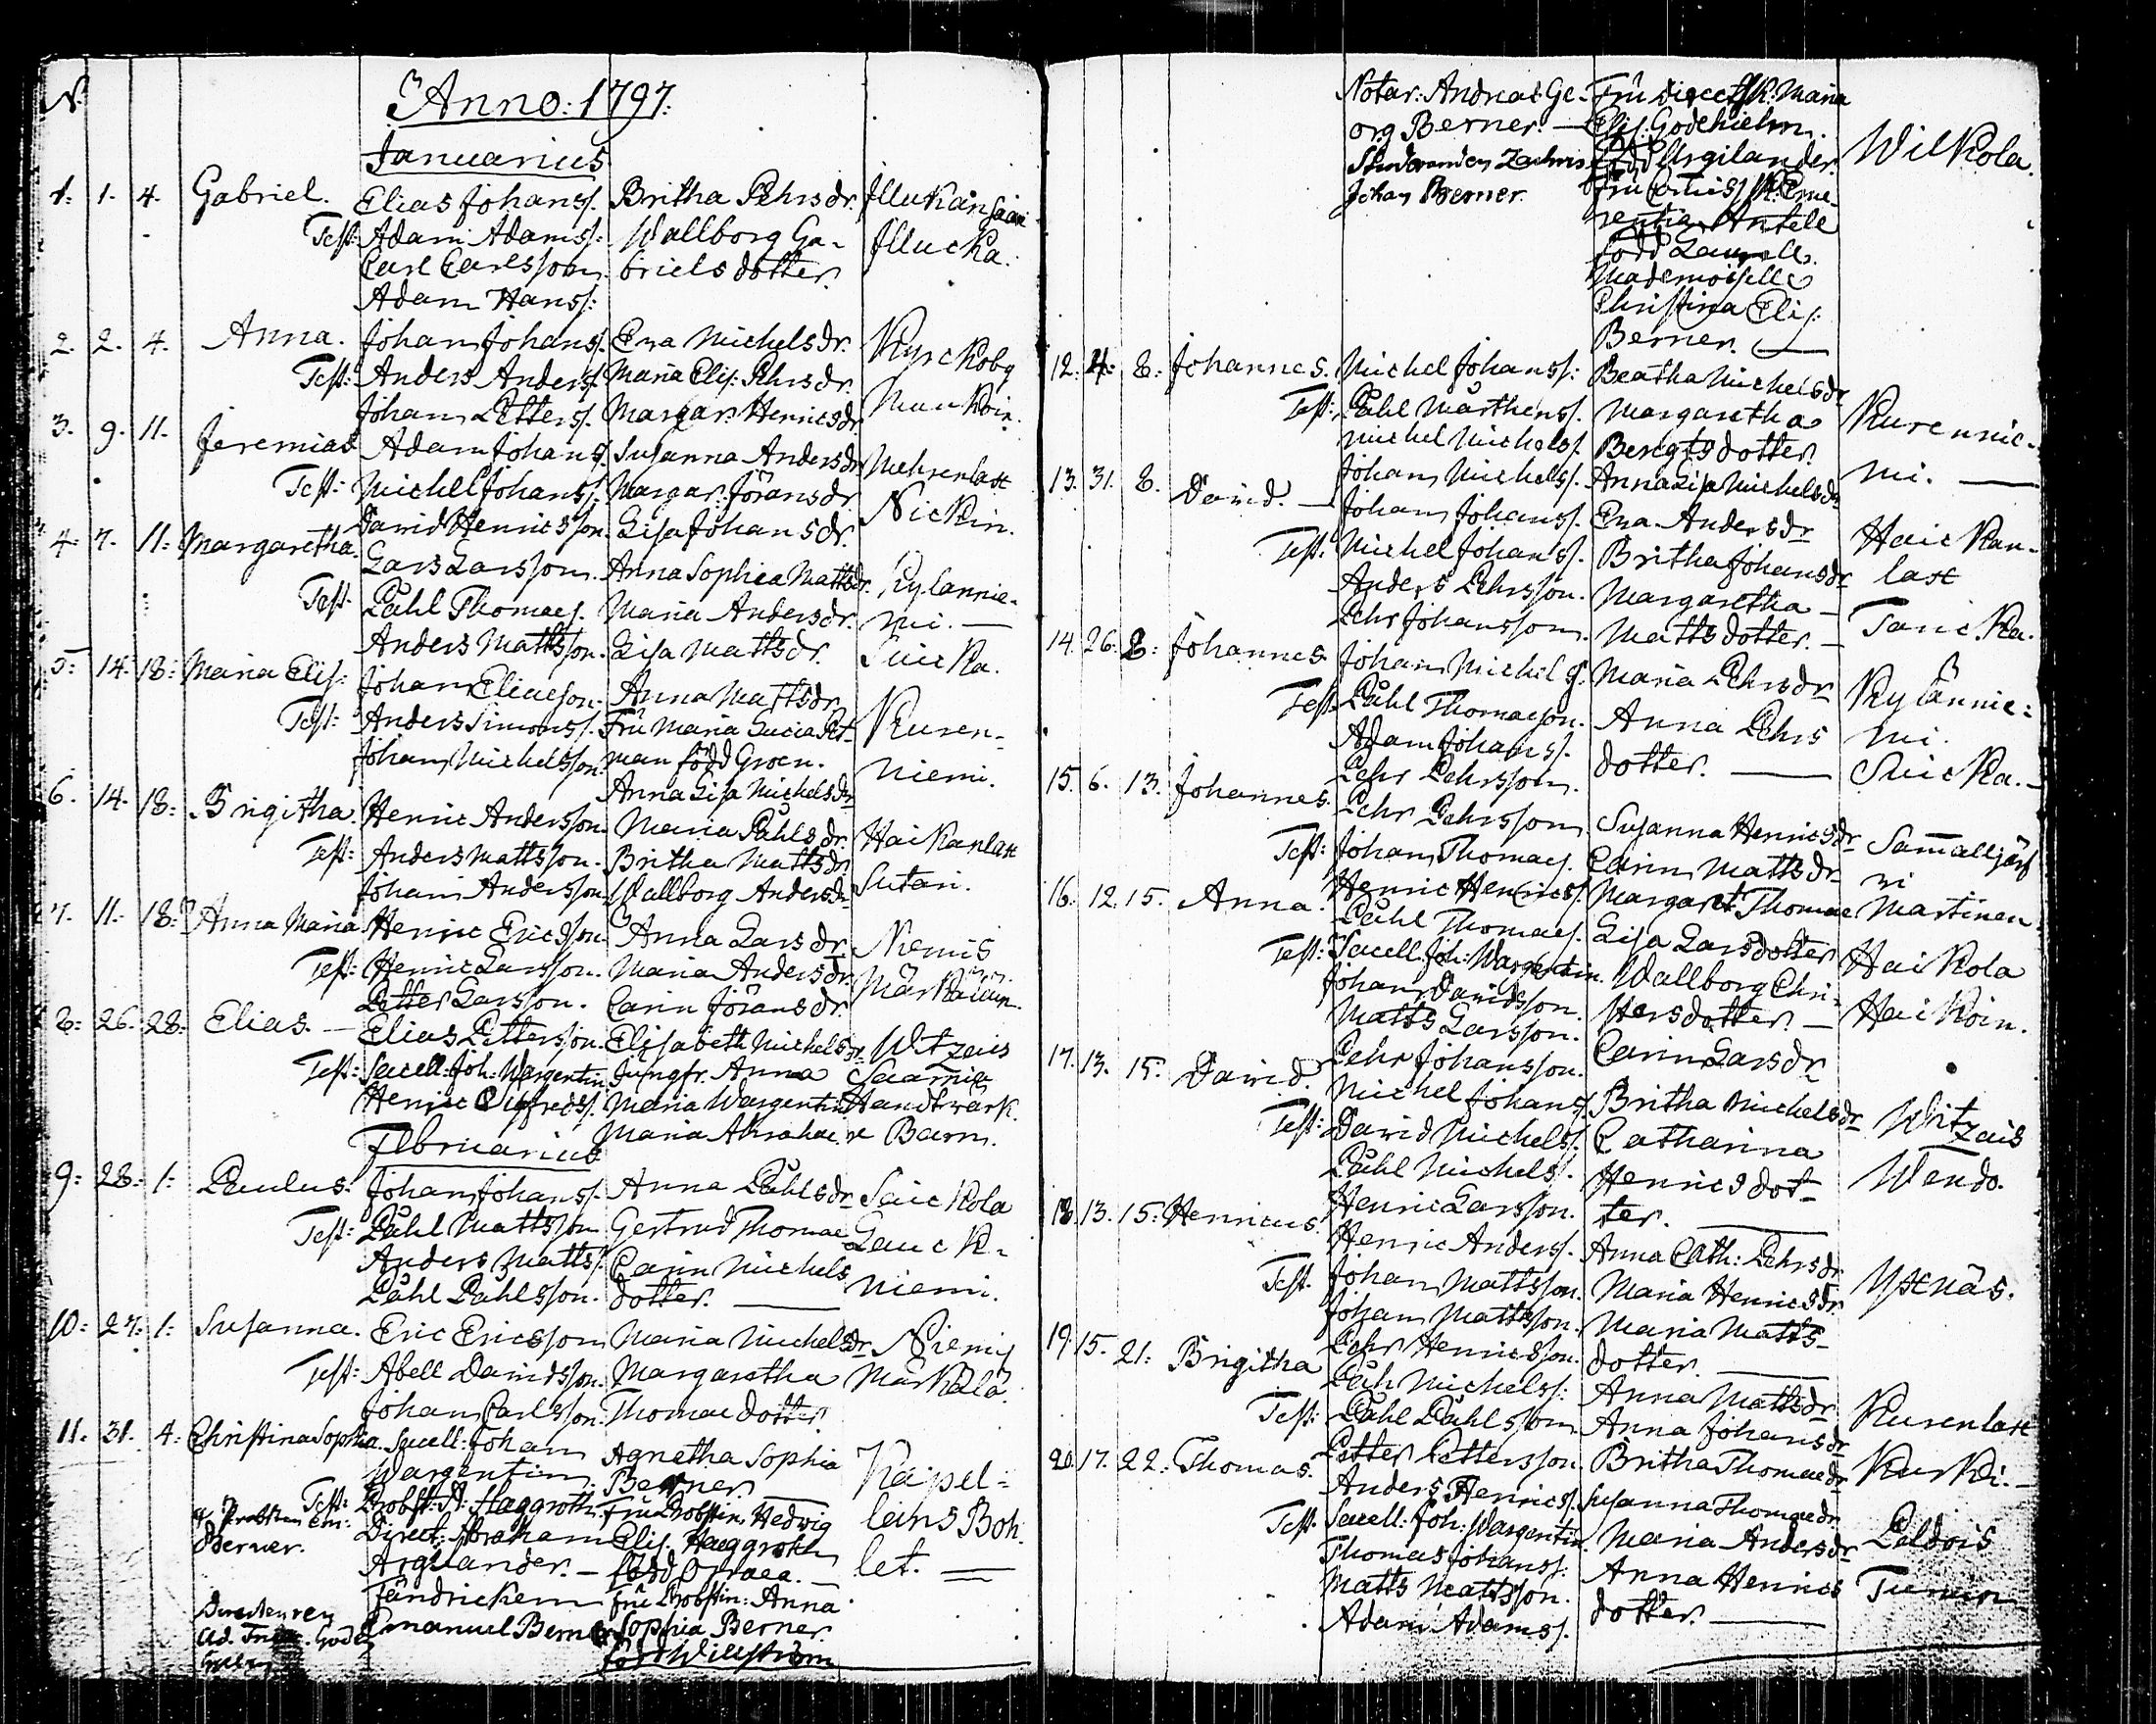 N.
Anno: 1797.
Januarius
1: 1. 4. Gabriel. Elias Johanss. Britha Pehrsdr. Illukansaari
Test: Adam Adamss: Wallborg Ga- Illucka.
Carl Carlsson. briels dotter.
Adam Hanss:
2. 2. 4. Anna. Johan Johanss. Eva Michelsdr. Kyrckoby
Test: Anders Anderss. Maria Elis: Pehrsdr. Munkoin.
Johan Petterss. Margar: Henricsdr.
3. 9. 11. Jeremias Adam Johans. Susanna Andersdr
Test: Michel Johanss. Margar: Göransdr. Nickin.
David Henricsson. Lisa Johansdr.
4. 7. 11: Margaretha. Lars Larsson. Anna Sophia Mattsdr. Kylannie-
Test. Påhl Thomas. Maria Andersdr. mi. —
Anders Mattsson. Lisa Mattsdr. Suicka.
5: 14. 18: Maria Elis: Johan Eliasson. Anna Mattsdr. Kuren-
Test: Anders Simonss. Fru Maria Lucia Pet- niemi.
Johan Michelsson. man född Groen.
Anna Lisa Michelsdr
6. 14. 18: Brigitha. Henric Andersson. Maria Påhlsdr. Haikanlax
Test: Anders Mattsson. Britha Mattsdr. Sutari.
Johan Andersson. Wallborg Andersdr
7. 11. 18: Anna Maria Henric Ericsson. Anna Larsdr. Niemis
Test: Henric Larsson. Maria Andersdr.
Petter Larsson. Carin Göransdr.
8: 26. 28: Elias. — Elias Pettersson. Elisabeth Michelsdr. Witzais
Test: Sacell: Joh: Wargentin. Jungfr. Anna Saarnia
Henric Sigfredss. Maria Wargentin Handtwärk.
Maria Abrahae Barn.
Februarius
9: 28. 1: Paulus. Johan Johanss. Anna Påhlsdr Saickola
Test: Påhl Mattsson Gertrud Thomae Lauck-
Anders Matts. Carin Michels niemi.
Påhl Påhlsson. dotter. —
10: 27. 1: Susanna. Eric Ericsson Maria Michelsdr Niemis
Test: Abell Davidsson. Margaretha Märkälä.
Johan Carlsson. Thomae dotter
11. 31. 4: Christina Sophia. Sacell: Johan Agnetha Sophia Kapel-
Wargentin. Berner — leins Boh.
Test: Probst: A: Haggroth Fru Probstin Hedwig let. —
Direct: Abraham Elis. Haggroth
Berner. Argilander. — född Orraea.
Fändricken Fru Probstin: Anna
Directeuren Emanuel Berner Sophia Berner
född Willström
Notar: Andreas Ge- Fru Direct Maria Wilkola.
org Berner. — Elis. Godehielm.
Studeranden Zachris född Argilander.
Johan Berner. Fru
Antell
född
Mademoiselle
Christina Elis:
Berner. —
12. 4. 8: Johannes. Michel Johanss: Beatha Michelsdr
Test: Påhl Mårthenss. Margaretha Kurennie-
Michel Michelss. Bengtsdotter. mi. —
Johan Michelss. Anna Lisa Michelsdr
13. 31. 8. David. — Johan Johanss. Eva Andersdr Haickan-
Test. Michel Johanss. Britha Johansdr lax
Anders Pehrsson. Margaretha — Tanicka.
Pehr Johansson. Mattsdotter. —
14. 26. 8: Johannes Johan Michels. Maria Pehrsdr Kylännie:
Test. Påhl Thomasson. Anna Pehrs mi.
Adam Johanss. dotter. — Suicka. —
Pehr Pehrsson.
15. 6. 13. Johannes. Pehr Pehrsson Susanna Henricsdr
Test: Johan Thomas. Carin Mattsdr
Henric Henricss. Margaret Thomae Martinen
16: 12. 15. Anna. Påhl Thomas. Lisa Larsdotter Haikola
Test: Sacell: Joh: Wargentin. Wallborg Chri- Haikoin.
Johan Davidsson. stersdotter. —
Matts Larsson. Carin Larsdr
Pehr Johansson.
17. 13. 15. David. Michel Johanss. Britha Michelsdr Witzais
Test: David Michelss. Catharina Wendo.
Påhl Michelss. Henricsdot-
Henric Larsson. ter. —
18. 13. 15: Henricus. Henric Anderss. Anna Cath: Pehrsdr
Test. Johan Mattsson. Maria Henricsdr Yxnäs.
Johan Mattsson. Maria Matts-
Pehr Henricsson. dotter —
19. 15. 21: Brigitha Påh Michelss: Anna Mattsdr
Test: Påhl Påhlsson Anna Johansdr Kurenlax
Petter Pettersson Britha Thomaedr Kurki. —
20. 17. 22: Thomas. Anders Henrics. Susanna Thomaedr.
Test. Sacell: Joh: Wargentin. Maria Andersdr Peldois
Thomas Johanss: Anna Henrics
Matts Mattsson. dotter. —
Adam Adamss.